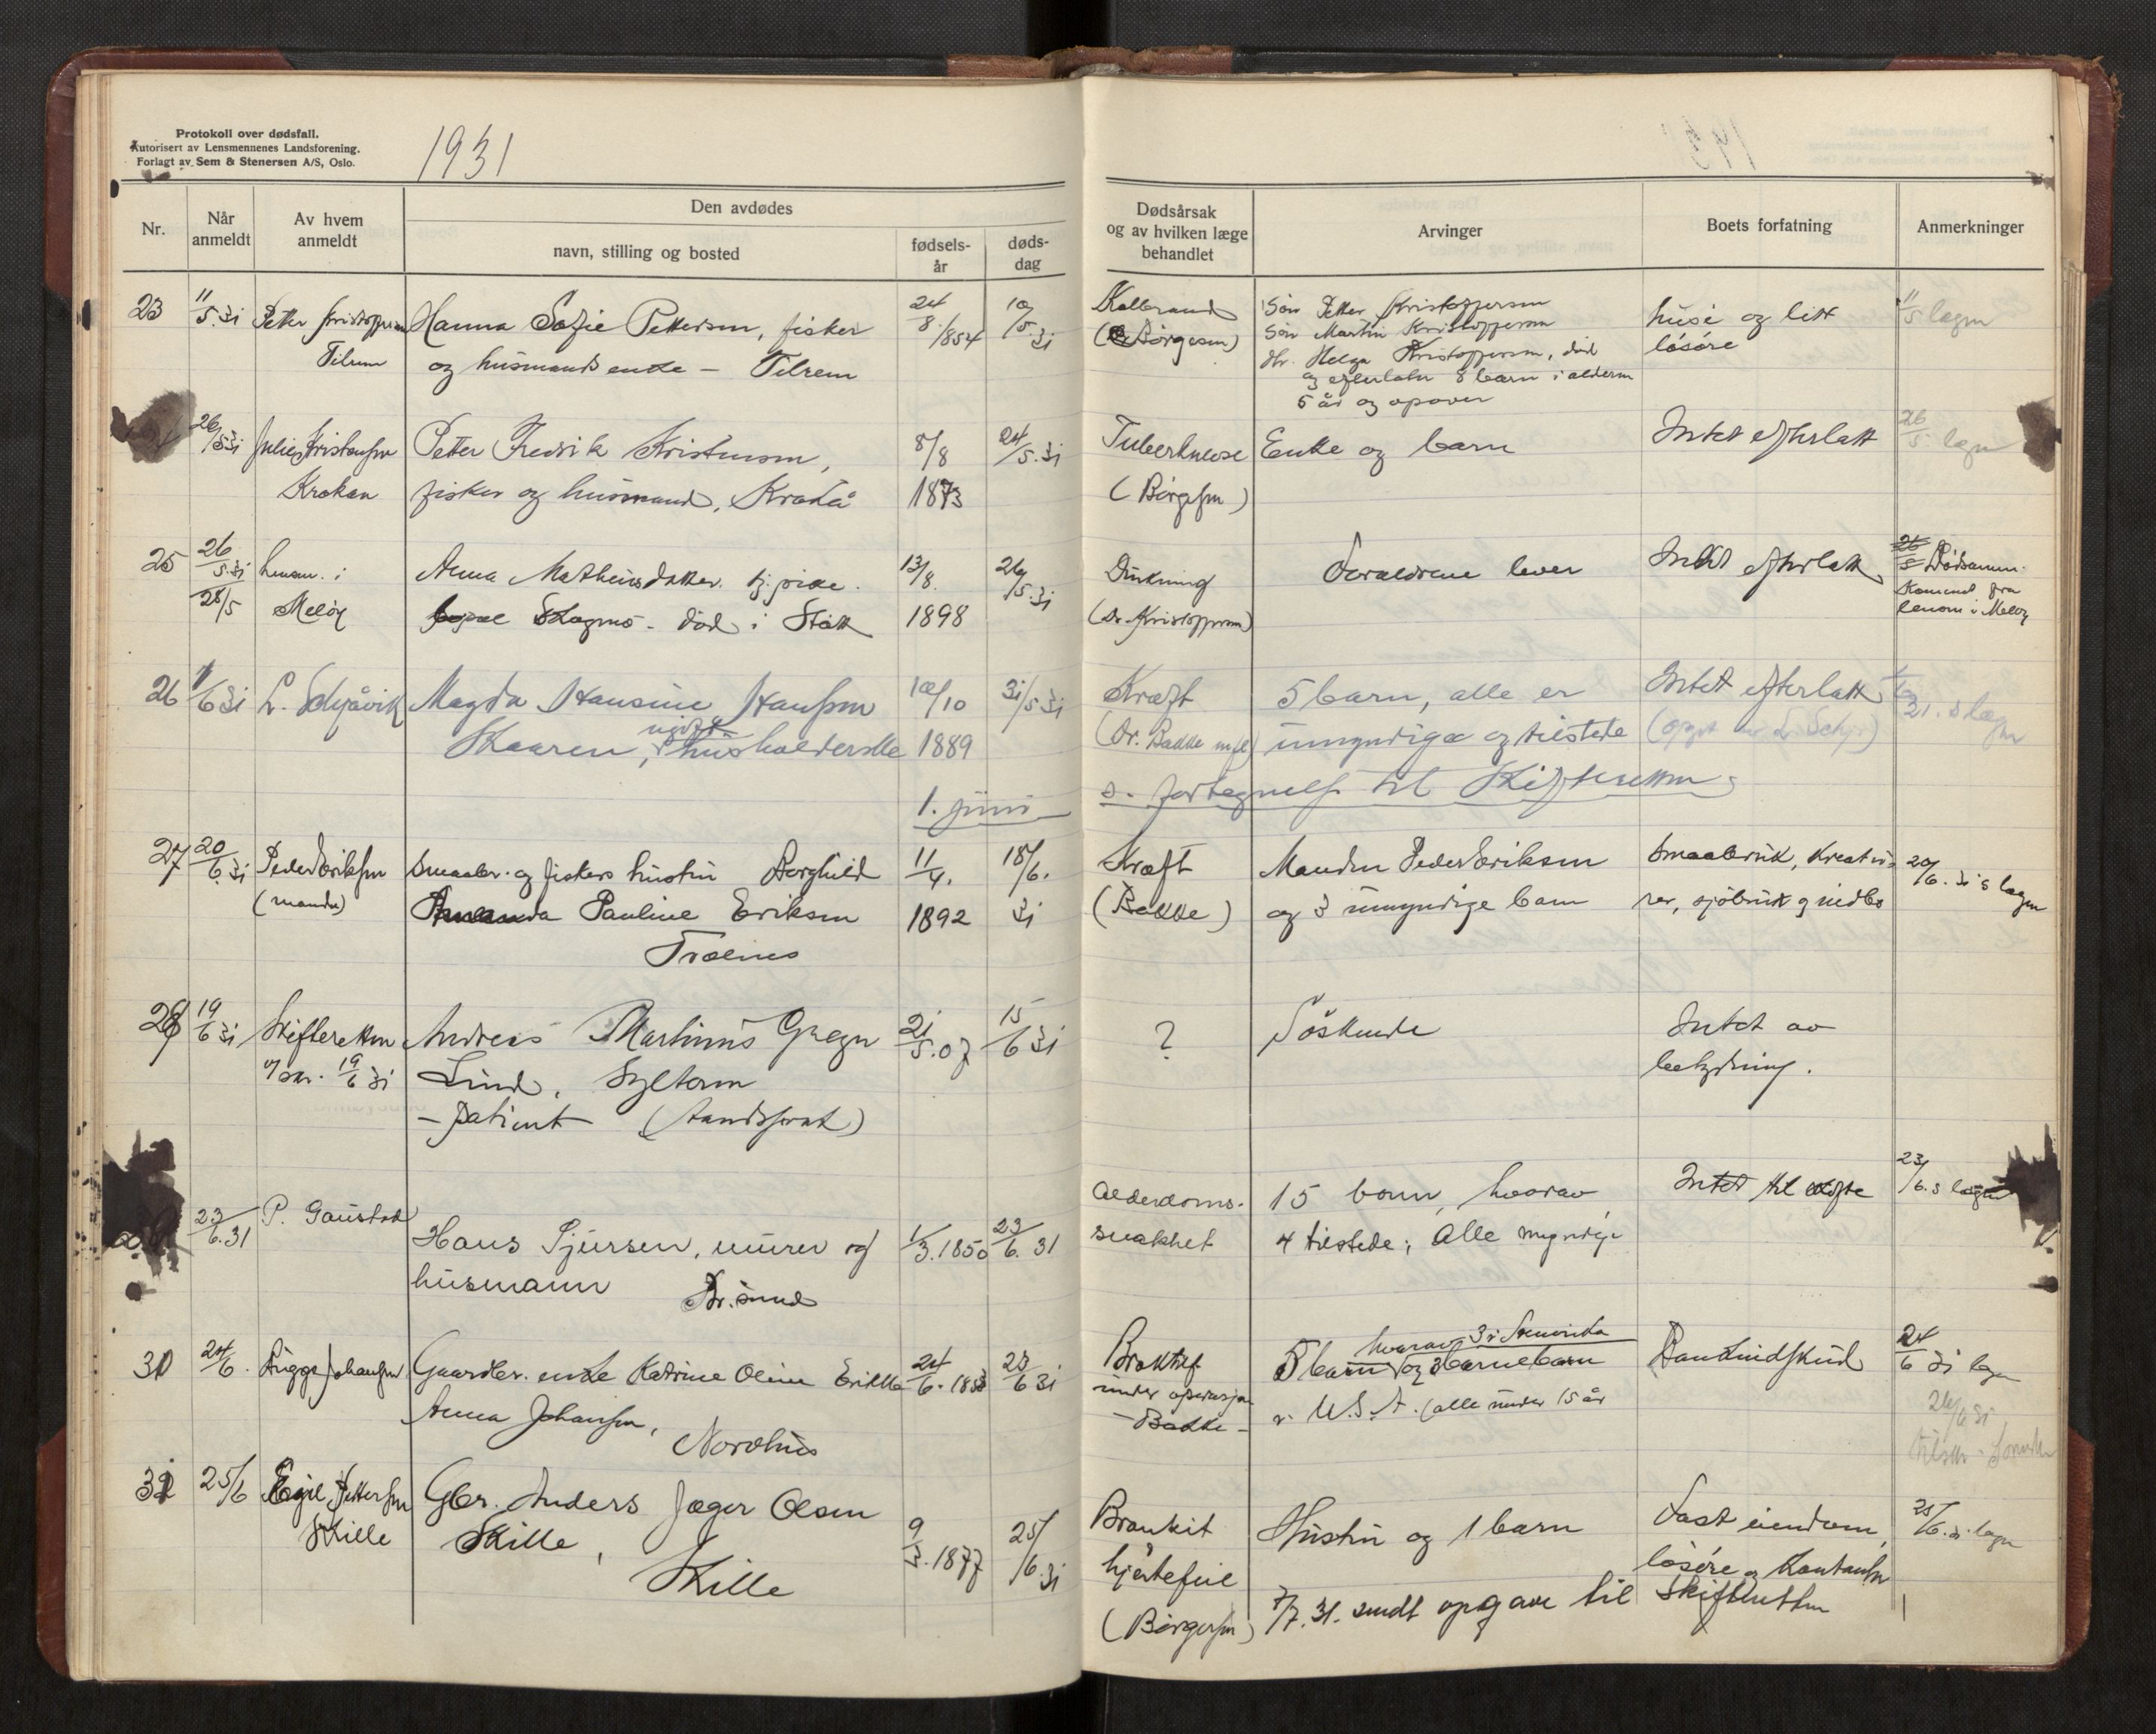 Protokoll over dødsfall.
Autorisert av Lensmennenes Landsforening.
Forlagt av Sem & Stenersen A/S, Oslo.
1931
Nr.
Når anmeldt
Av hvem anmeldt
Den avdødes
navn, stilling og bosted
fødsels-år
døds-dag
Dødsårsak og av hvilken læge behandlet
Arvinger
Boets forfatning
Anmerkninger
23
11/5.31
Petter Kristoffersen
Tilrem
Hanna Sofie Pettersen, fisker
og husmands enke – Tilrem
24/8./854
10/5.31
Kolbrand
(Børgesen)
Søn Petter Kristoffersen
Søn Martin Kristoffersen
dtr. Helga Kristoffersen, død
og efterlatn 8 barn i alderen
5 år og opover
huse og litt
løsøre
11/5 lagm
26/5 31
Julie Kristensen
Krokan
Petter Fredrik Kristensen,
fisker og husmand, Krokå
8/8
1873
24/5.31
Tuberkulose
(Børgesen)
Enke og barn
Intet efterlatt
26/5 lagm
25
26/5.31
28/5
lensm. i
Meløy
Anna Mathensdatter tj. pike.
Skagmo – død i Støtt
13/8.
1898
26/5.31
Drukning
(Dr. Kristoffersen)
Foreldrene lever
Intet efterlatt
26/5 Dødsanm.
kommet fra
lensm i Meløy
26
1/6 31
L. Schjåvik
Magda Hansine Hansen
ugift
Skaaren, husholderske
10/10
1889
31/5 31
Kræft
(Dr. Bakke m.fl)
5 barn, alle er
umyndige og tilstede
Intet efterlatt
1. juni
s. fortegnelse til Skifteretten
27
20/6.31
Peder Eriksen
(manden)
Smaabr. og fiskers hustru Borghild
Amanda Pauline Eriksen
Trælnes
11/4.
1892
18/6.
31
Kræft
(Bakke)
Manden Peder Eriksen
og 3 umyndige barn
Smaabruk, Kreatu-
rer, sjøbruk og indbo
20/6. 31 s lagm
28
19/6 31
Skifteretten
19/6 31
Andreas Martinus Greger
Lind, Sylteren
– patient (Aandssvak)
21/5.07
15/6 31
?
Søskende
Intet av
betydning.
23/6.31
P. Gaustad
Hans Sjursen, murer og
husmann
Br.sund
1/3.1850
23/6. 31
Alderdoms-
svakhet
15 barn, hvorav
4 tilstede; Alle myndige
Intet til skifte
23/6. s lagm
30
24/6.
Trygge Johansen
Gaardbr. enke Katrine Oline Erikke
Anna Johansen,
Nordhus
24/6. 1853
23/6 31
Brokk
under operasjon
– Bakke –
hvorav 3 i Amerika
5 barn og 3 barnebarn
i U.S.A. (alle under 15 år
24/6 31 lagm
24/6 31
31
25/6
Egil Pettersen
Skille
Gbr. Anders Jæger Olsen
Skille,
Skille
9/3.1877
25/6.31
Bronkit
hjertefeil
(Børgesen)
Hustru og 1 barn
Fast eiendom,
løsøre og Kontanter
25/6.31. lagm
7/7.31. sendt opgave til skifteretten